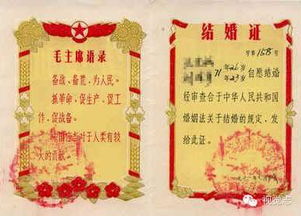 毛主席语录
备战、备荒、为人民。
抓革命，促生产，促工
作，促战备。
中国应当对于人类有较
大的贡献。
结婚证
字第158号
自愿结婚
经审查合于中华人民共和国
婚姻法关于结婚的规定，发
给此证。
视觉志